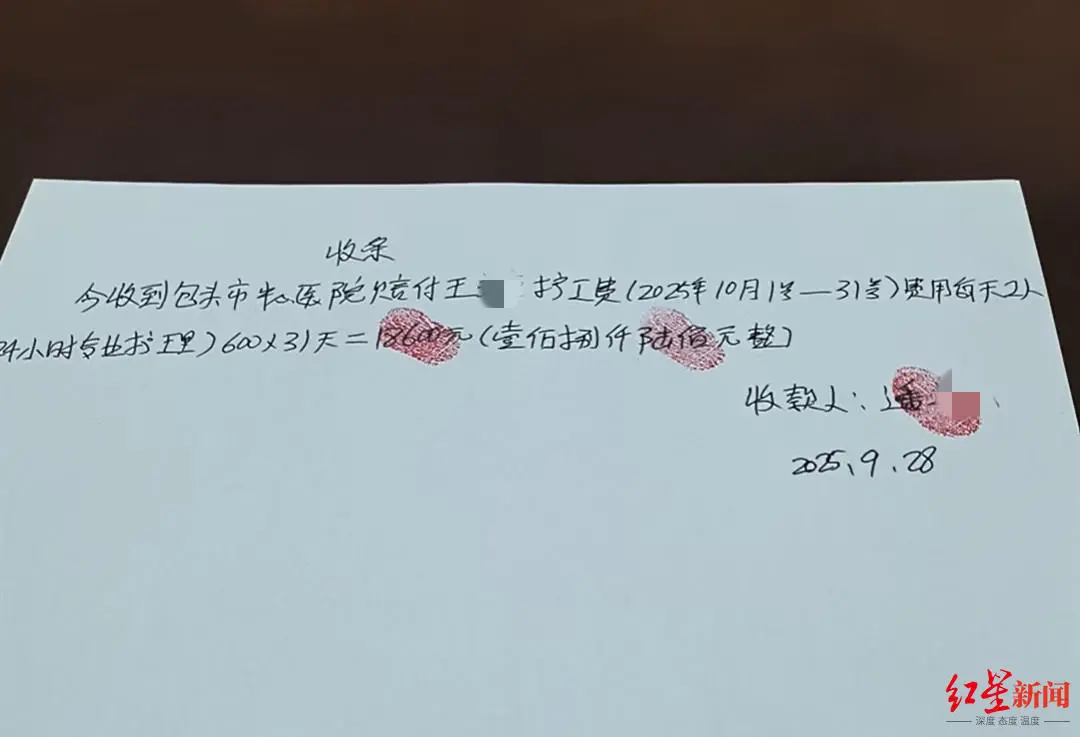 收条
今收到包头市中心医院赔付王 护工费(2025年10月1号—31号)费用每天2人
24小时专业护理)600×31天=18600元(壹佰捌仟陆佰元整)
收款人:潘
2025、9、28
红星新闻
深度 态度 温度